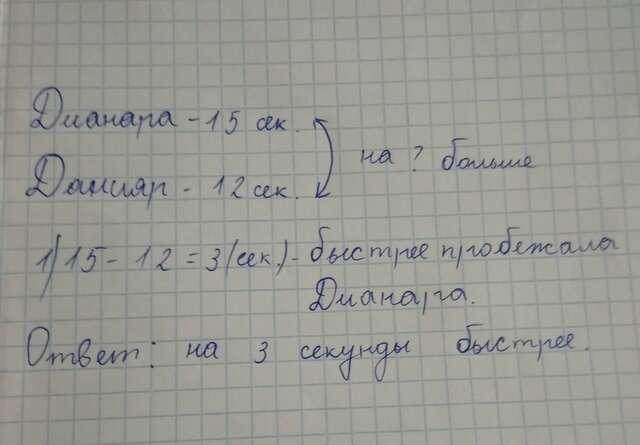 Дианара - 15 сек.
Данияр - 12 сек.
на ? больше
1) 15 - 12 = 3 (сек.) - быстрее пробежала
Дианара.
Ответ: на 3 секунды быстрее.